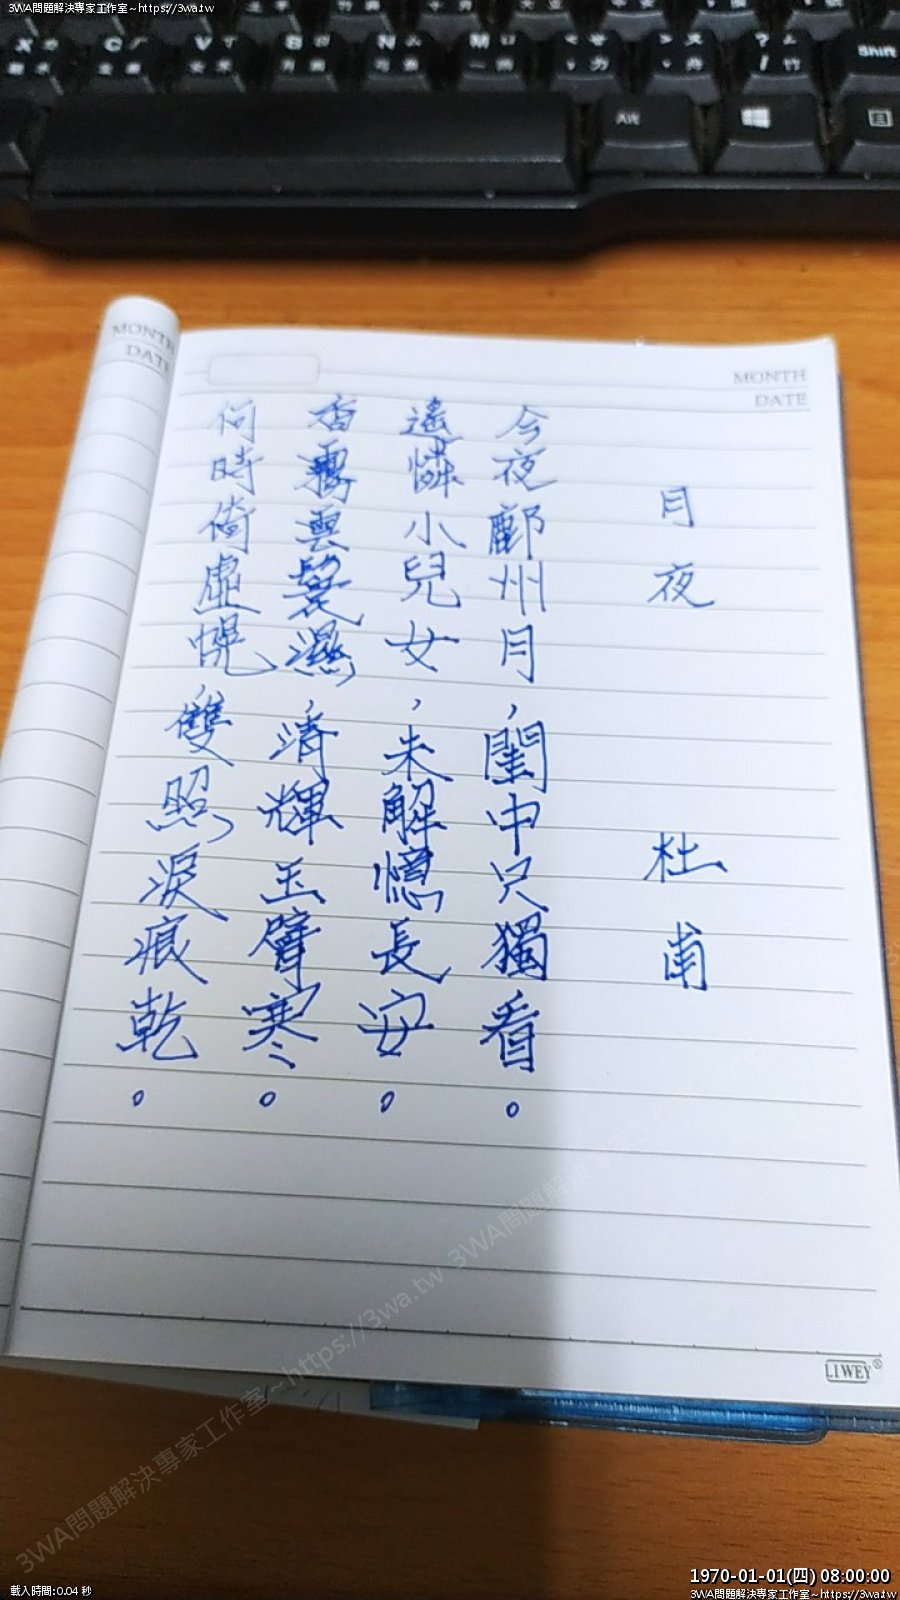 3WA問題解決專家工作室~https://3wa.tw
X
C
V
B
N
M
Shift
Alt
MONTH
DATE
MONTH
DATE
月夜
杜甫
今夜鄜州月,閨中只獨看。
遙憐小兒女,未解憶長安。
香霧雲鬟濕,清輝玉臂寒。
何時倚虛幌,雙照淚痕乾。
LIWEY®
3WA問題解決專家工作室~https://3wa.tw 3WA問題解決專家工作室~
載入時間:0.04 秒
1970-01-01(四) 08:00:00
3WA問題解決專家工作室~https://3wa.tw